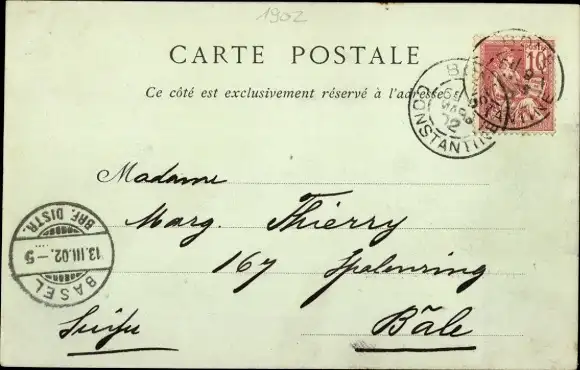 1902
CARTE POSTALE
Ce côté est exclusivement réservé à l'adresse
POSTES
10
CONSTANTINE
MARS
02
Madame
Marg. Thierry
167 Spalenring
BRF. DISTR.
13.III.02.–5
BASEL
Suisse
Bâle